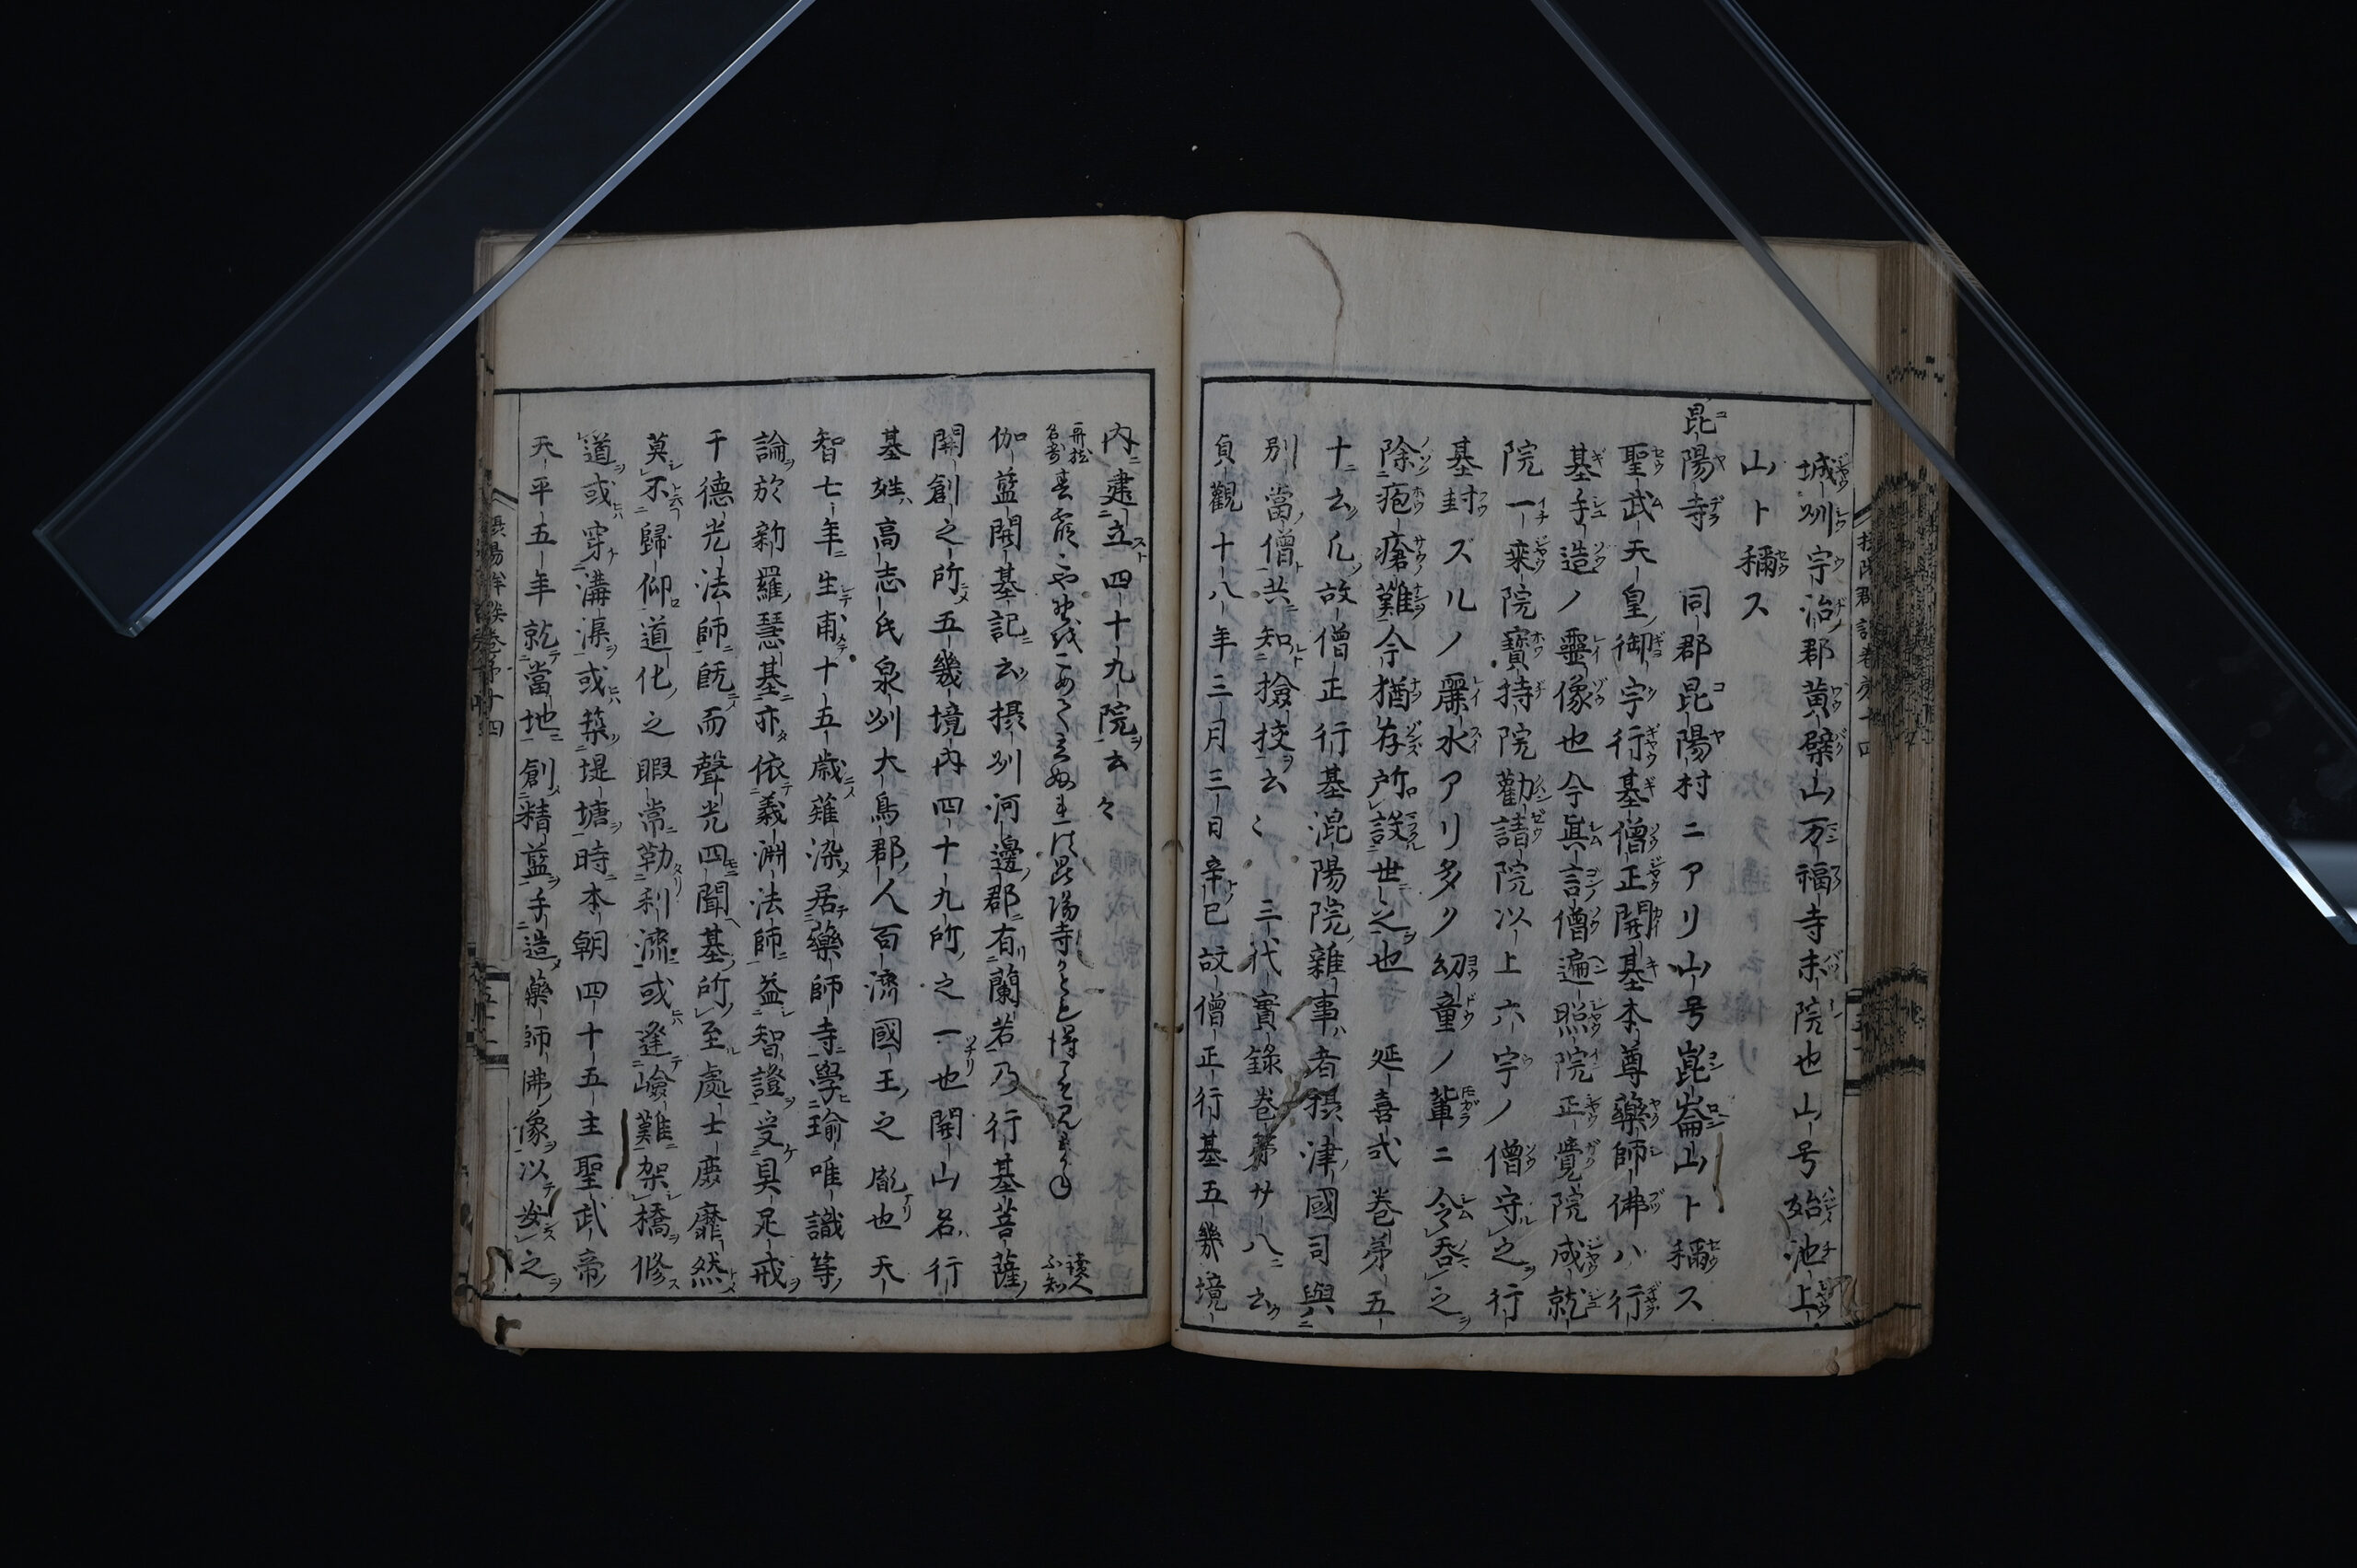 城州宇治郡黄檗山万福寺末院也山号始池上
山ト穪ス
昆陽寺 同郡昆陽村ニアリ山号崑崙山ト穪ス
聖武天皇御宇行基僧正開基本尊藥師佛ハ行
基手造ノ靈像也今眞言僧遍照院正覺院成就
院一乘院寳持院勸請院以上六宇ノ僧守之行
基封ズルノ麗水アリ多ク幼童ノ輩ニ令呑之
除疱瘡難今猶存所設世之也 延喜式卷第五
十云凡故僧正行基混陽院雜事者摂津國司與
別當僧共知撿挍云〻 三代實錄卷第廿八云
貞觀十八年三月三日辛巳故僧正行基五畿境
内建立四十九院云々
伽藍開基記云摂州河邊郡有蘭若乃行基菩薩
開創之所五畿境内四十九所之一也開山名行
基姓高志氏泉州大鳥郡人百濟國王之胤也天
智七年生甫十五歳薙染居藥師寺學瑜唯識等
論於新羅慧基亦依義淵法師益智證受具足戒
千德光法師旣而聲光四聞基所至處士庶靡然
莫不歸仰道化之暇常勒利濟或逢嶮難架橋修
道或穿溝渠或築堤塘時本朝四十五主聖武帝
天平五年就當地創精藍手造藥師佛像以安之